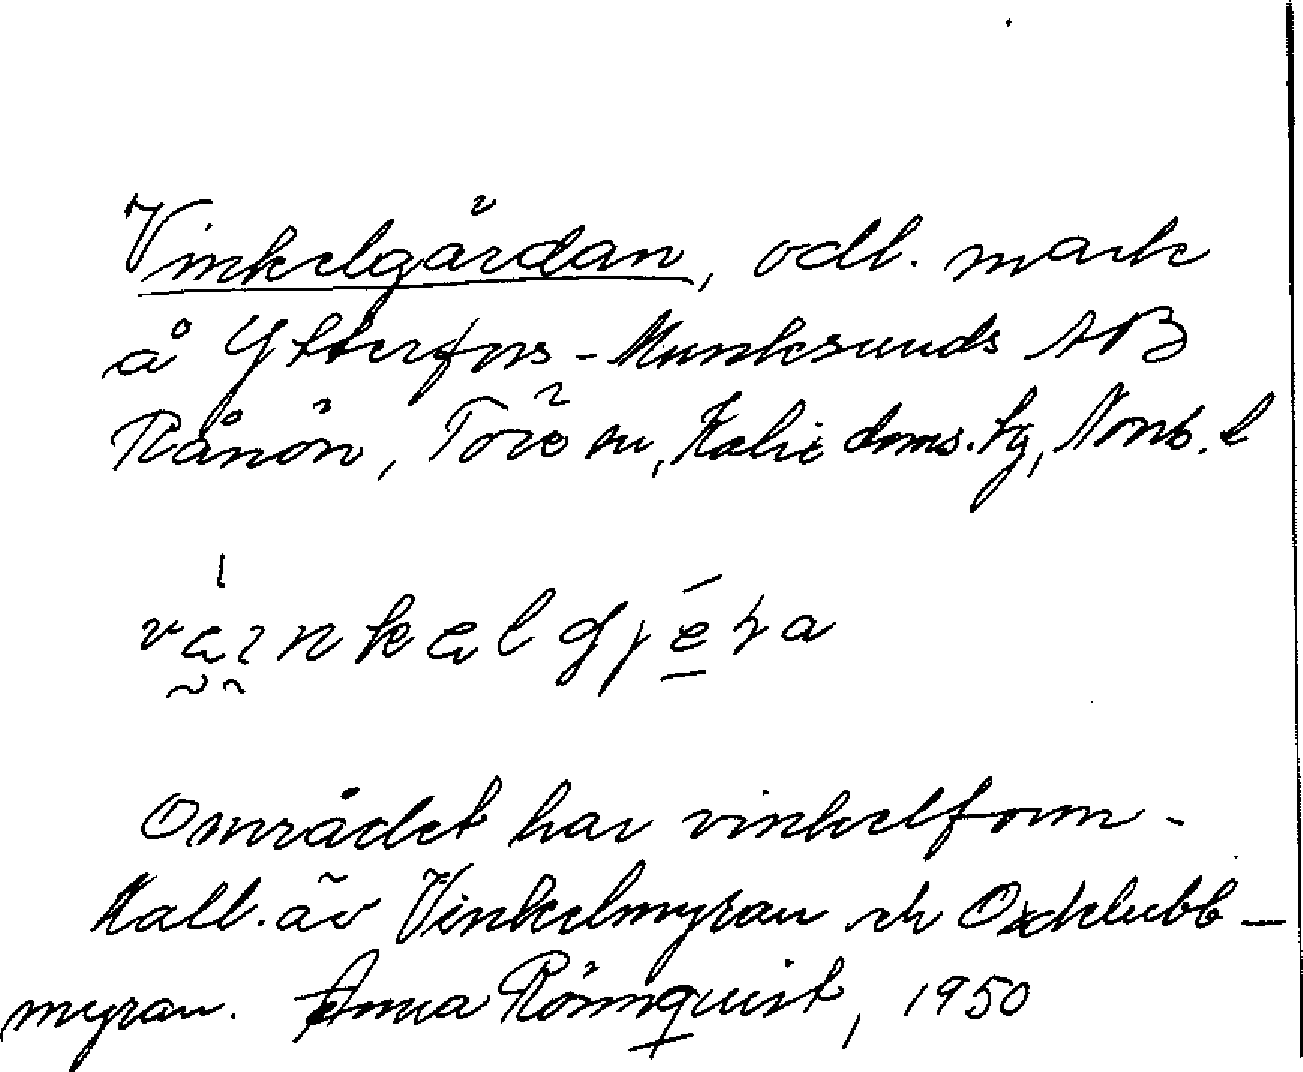 Vinkelgärdan, odl. mark
å Ytterfors-Munksunds AB
Rånön, Töre sn, Kalix doms. tg, Norrb. l
Området har vinkelform -
Kall. äv Vinkelmyran och Oxklubb-
myran. Anna Rönnquist, 1950